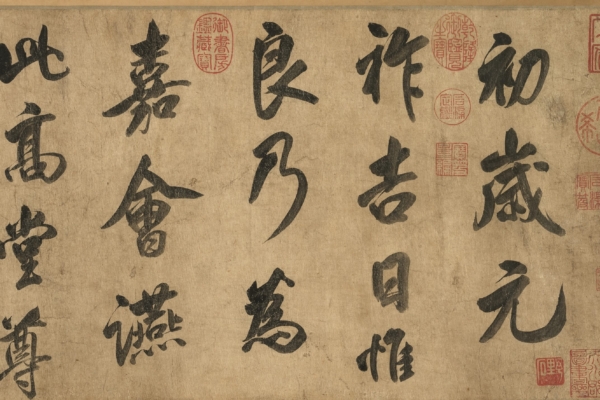 初歲元
祚吉日惟
良乃為
嘉會讌
此高堂尊